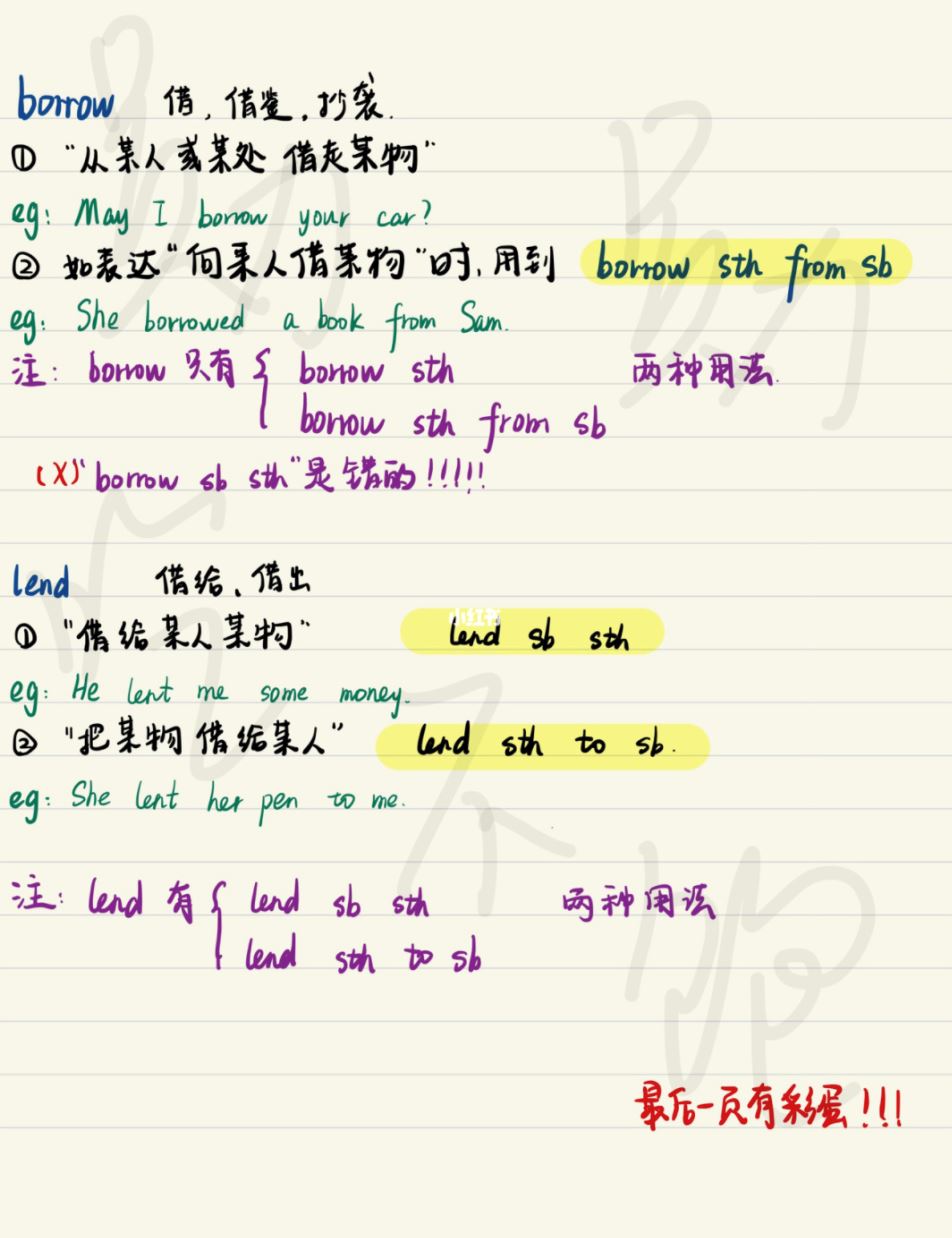 borrow 借,借鉴,抄袭.
① “从某人或某处 借走某物”
eg: May I borrow your car?
② 如表达“向某人借某物”时,用到 borrow sth from sb
eg: She borrowed a book from Sam.
注: borrow 只有 { borrow sth 两种用法.
borrow sth from sb
(X)“borrow sb sth”是错的!!!!!
lend 借给、借出
小红书
① “借给某人某物” lend sb sth
eg: He lent me some money.
② “把某物借给某人” lend sth to sb.
eg: She lent her pen to me.
注: lend 有 { lend sb sth 两种用法
lend sth to sb
最后一页有彩蛋!!!